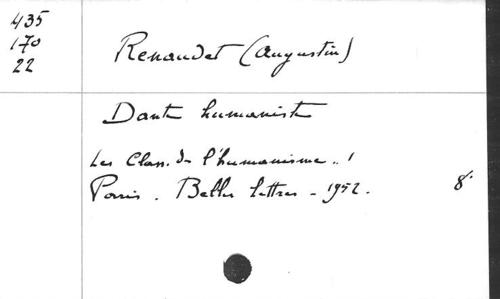 435
170
22
Renaudet (Augustin)
Dante humaniste
Les Class. de l'humanisme .. 1
Paris . Belles lettres - 1952. 8°